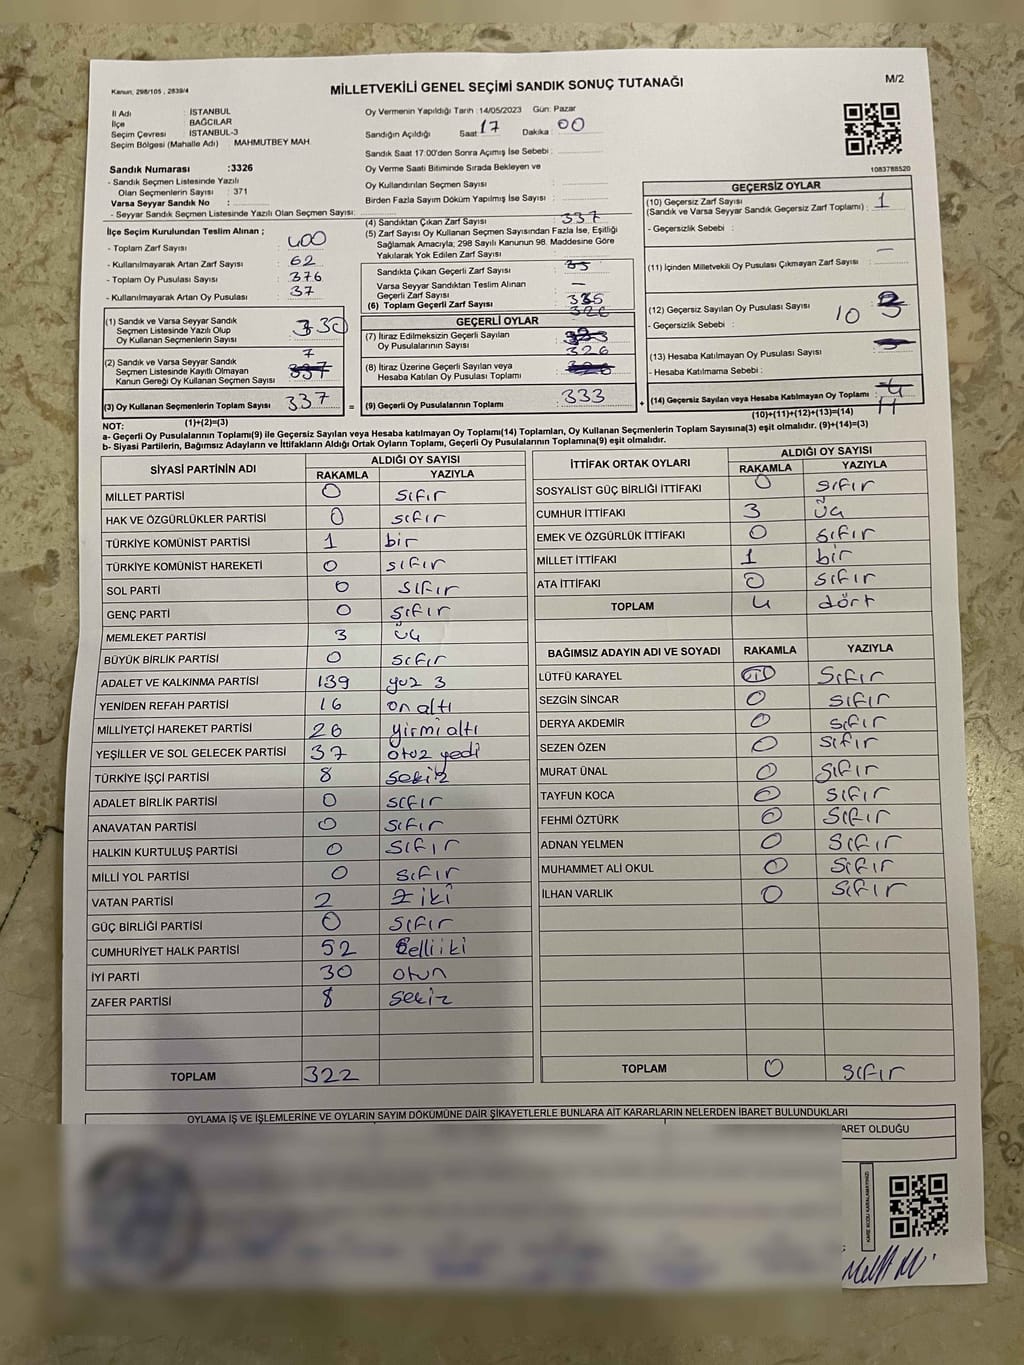 Kanun, 298/105 , 2839/4
MİLLETVEKİLİ GENEL SEÇİMİ SANDIK SONUÇ TUTANAĞI
M/2
İl Adı : İSTANBUL
İlçe : BAĞCILAR
Seçim Çevresi : İSTANBUL-3
Seçim Bölgesi (Mahalle Adı) MAHMUTBEY MAH.
Oy Vermenin Yapıldığı Tarih : 14/05/2023 Gün: Pazar
Sandığın Açıldığı Saat 17 Dakika : 00
Sandık Saat 17:00'den Sonra Açımış İse Sebebi :
Oy Verme Saati Bitiminde Sırada Bekleyen ve
Oy Kullandırılan Seçmen Sayısı
Birden Fazla Sayım Döküm Yapılmış İse Sayısı :
1083788520
Sandık Numarası :3326
- Sandık Seçmen Listesinde Yazılı
Olan Seçmenlerin Sayısı : 371
Varsa Seyyar Sandık No :
- Seyyar Sandık Seçmen Listesinde Yazılı Olan Seçmen Sayısı:
İlçe Seçim Kurulundan Teslim Alınan ;
- Toplam Zarf Sayısı : 400
- Kullanılmayarak Artan Zarf Sayısı : 62
- Toplam Oy Pusulası Sayısı : 376
- Kullanılmayarak Artan Oy Pusulası : 37
(1) Sandık ve Varsa Seyyar Sandık
Seçmen Listesinde Yazılı Olup
Oy Kullanan Seçmenlerin Sayısı
330
(2) Sandık ve Varsa Seyyar Sandık
Seçmen Listesinde Kayıtlı Olmayan
Kanun Gereği Oy Kullanan Seçmen Sayısı
7
337
(3) Oy Kullanan Seçmenlerin Toplam Sayısı 337 =
(4) Sandıktan Çıkan Zarf Sayısı : 337
(5) Zarf Sayısı Oy Kullanan Seçmen Sayısından Fazla İse, Eşitliği
Sağlamak Amacıyla, 298 Sayılı Kanunun 98. Maddesine Göre
Yakılarak Yok Edilen Zarf Sayısı :
Sandıkta Çıkan Geçerli Zarf Sayısı
Varsa Seyyar Sandıktan Teslim Alınan
Geçerli Zarf Sayısı : –
(6) Toplam Geçerli Zarf Sayısı :
GEÇERLİ OYLAR
326
(7) İtiraz Edilmeksizin Geçerli Sayılan
Oy Pusulalarının Sayısı
326
(8) İtiraz Üzerine Geçerli Sayılan veya
Hesaba Katılan Oy Pusulası Toplamı
(9) Geçerli Oy Pusulalarının Toplamı : 333 +
GEÇERSİZ OYLAR
(10) Geçersiz Zarf Sayısı
(Sandık ve Varsa Seyyar Sandık Geçersiz Zarf Toplamı) : 1
- Geçersizlik Sebebi :
(11) İçinden Milletvekili Oy Pusulası Çıkmayan Zarf Sayısı : –
(12) Geçersiz Sayılan Oy Pusulası Sayısı : 10
- Geçersizlik Sebebi :
(13) Hesaba Katılmayan Oy Pusulası Sayısı :
- Hesaba Katılmama Sebebi :
(14) Geçersiz Sayılan veya Hesaba Katılmayan Oy Toplamı : 4
11
(10)+(11)+(12)+(13)=(14)
NOT: (1)+(2)=(3)
a- Geçerli Oy Pusulalarının Toplamı(9) ile Geçersiz Sayılan veya Hesaba katılmayan Oy Toplamı(14) Toplamları, Oy Kullanan Seçmenlerin Toplam Sayısına(3) eşit olmalıdır. (9)+(14)=(3)
b- Siyasi Partilerin, Bağımsız Adayların ve İttifakların Aldığı Ortak Oyların Toplamı, Geçerli Oy Pusulalarının Toplamına(9) eşit olmalıdır.
SİYASİ PARTİNİN ADI ALDIĞI OY SAYISI
RAKAMLA YAZIYLA
MİLLET PARTİSİ 0 sıfır
HAK VE ÖZGÜRLÜKLER PARTİSİ 0 sıfır
TÜRKİYE KOMÜNİST PARTİSİ 1 bir
TÜRKİYE KOMÜNİST HAREKETİ 0 sıfır
SOL PARTİ 0 sıfır
GENÇ PARTİ 0 sıfır
MEMLEKET PARTİSİ 3 üç
BÜYÜK BİRLİK PARTİSİ 0 sıfır
ADALET VE KALKINMA PARTİSİ 139 yuz 3
YENİDEN REFAH PARTİSİ 16 on altı
MİLLİYETÇİ HAREKET PARTİSİ 26 yirmi altı
YEŞİLLER VE SOL GELECEK PARTİSİ 37 otuz yedi
TÜRKİYE İŞÇİ PARTİSİ 8 sekiz
ADALET BİRLİK PARTİSİ 0 sıfır
ANAVATAN PARTİSİ 0 sıfır
HALKIN KURTULUŞ PARTİSİ 0 sıfır
MİLLİ YOL PARTİSİ 0 sıfır
VATAN PARTİSİ 2 iki
GÜÇ BİRLİĞİ PARTİSİ 0 sıfır
CUMHURİYET HALK PARTİSİ 52 Belli iki
İYİ PARTİ 30 otun
ZAFER PARTİSİ 8 sekiz
TOPLAM 322
İTTİFAK ORTAK OYLARI ALDIĞI OY SAYISI
RAKAMLA YAZIYLA
SOSYALİST GÜÇ BİRLİĞİ İTTİFAKI 0 sıfır
CUMHUR İTTİFAKI 3 üç
EMEK VE ÖZGÜRLÜK İTTİFAKI 0 sıfır
MİLLET İTTİFAKI 1 bir
ATA İTTİFAKI 0 sıfır
TOPLAM 4 dört
BAĞIMSIZ ADAYIN ADI VE SOYADI RAKAMLA YAZIYLA
LÜTFÜ KARAYEL sıfır
SEZGİN SİNCAR 0 sıfır
DERYA AKDEMİR 0 sıfır
SEZEN ÖZEN 0 sıfır
MURAT ÜNAL 0 sıfır
TAYFUN KOCA 0 sıfır
FEHMİ ÖZTÜRK 0 sıfır
ADNAN YELMEN 0 sıfır
MUHAMMET ALİ OKUL 0 sıfır
İLHAN VARLIK 0 sıfır
TOPLAM 0 sıfır
OYLAMA İŞ VE İŞLEMLERİNE VE OYLARIN SAYIM DÖKÜMÜNE DAİR ŞİKAYETLERLE BUNLARA AİT KARARLARIN NELERDEN İBARET BULUNDUKLARI
ARET OLDUĞU
KARE KODU KARALAMAYINIZ!